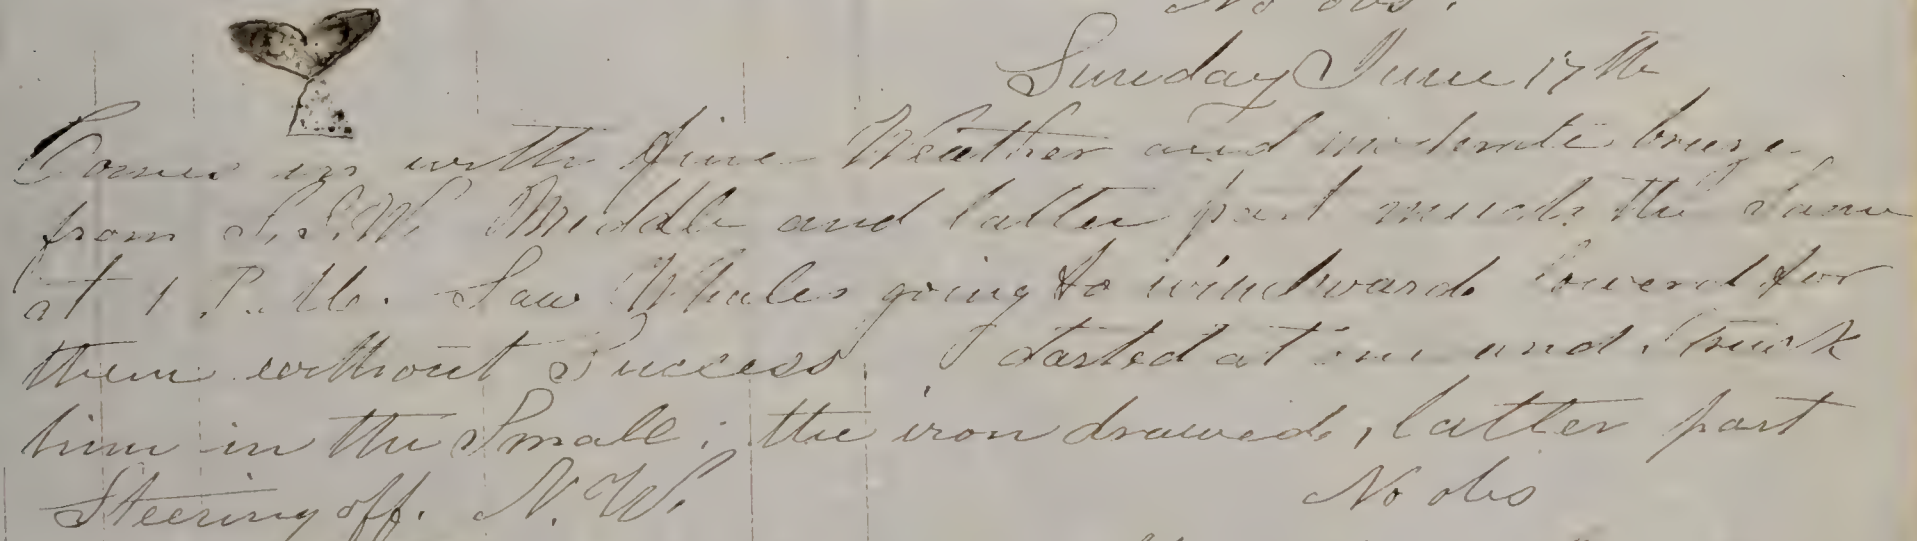 No obs.
Sunday June 17th
Comes in with fine Weather and moderate breeze
from S.S.W. Middle and latter part much the Same
at 1 P.M. Saw Whales going to windward lowerd for
them without Success. I darted at one and Struck
him in the Small; the iron drawed, latter part
Steering off. N.W.
No obs